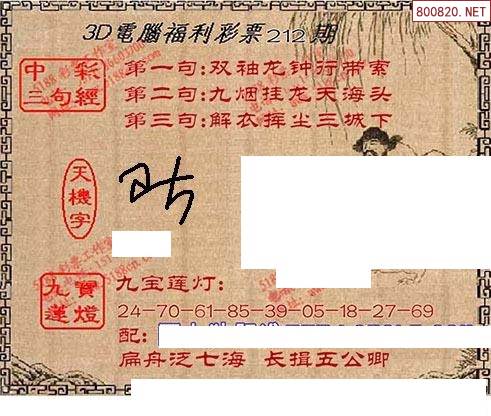 800820.NET
3D電腦福利彩票212期
中彩三句經
第一句:双袖龙钟行带索
第二句:九烟挂龙天海头
第三句:解衣挥尘三城下
天機字
九寶蓮燈
九宝莲灯:
24-70-61-85-39-05-18-27-69
配:
扁舟泛七海 长揖五公卿